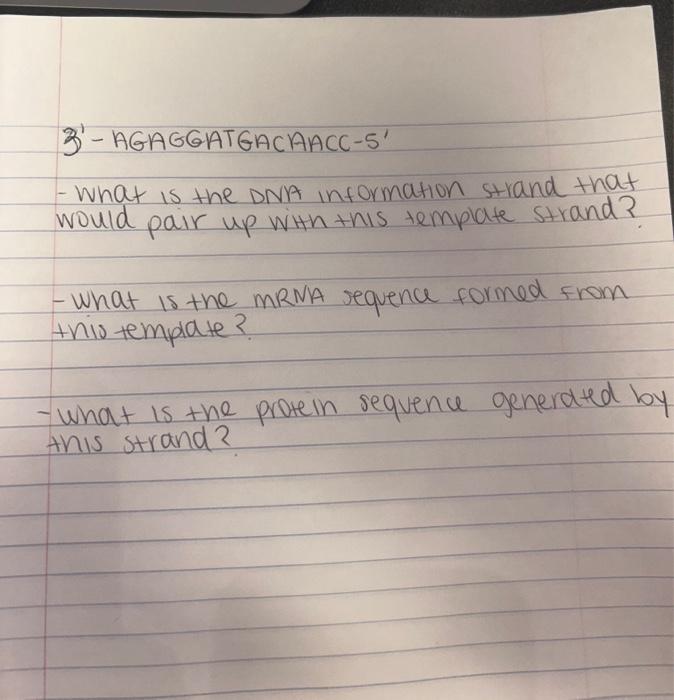 3'- AGAGGATGACAACC-5'
- what is the DNA information strand that
would pair up with this template strand?
- what is the mRNA sequence formed from
this template?
- what is the protein sequence generated by
this strand?